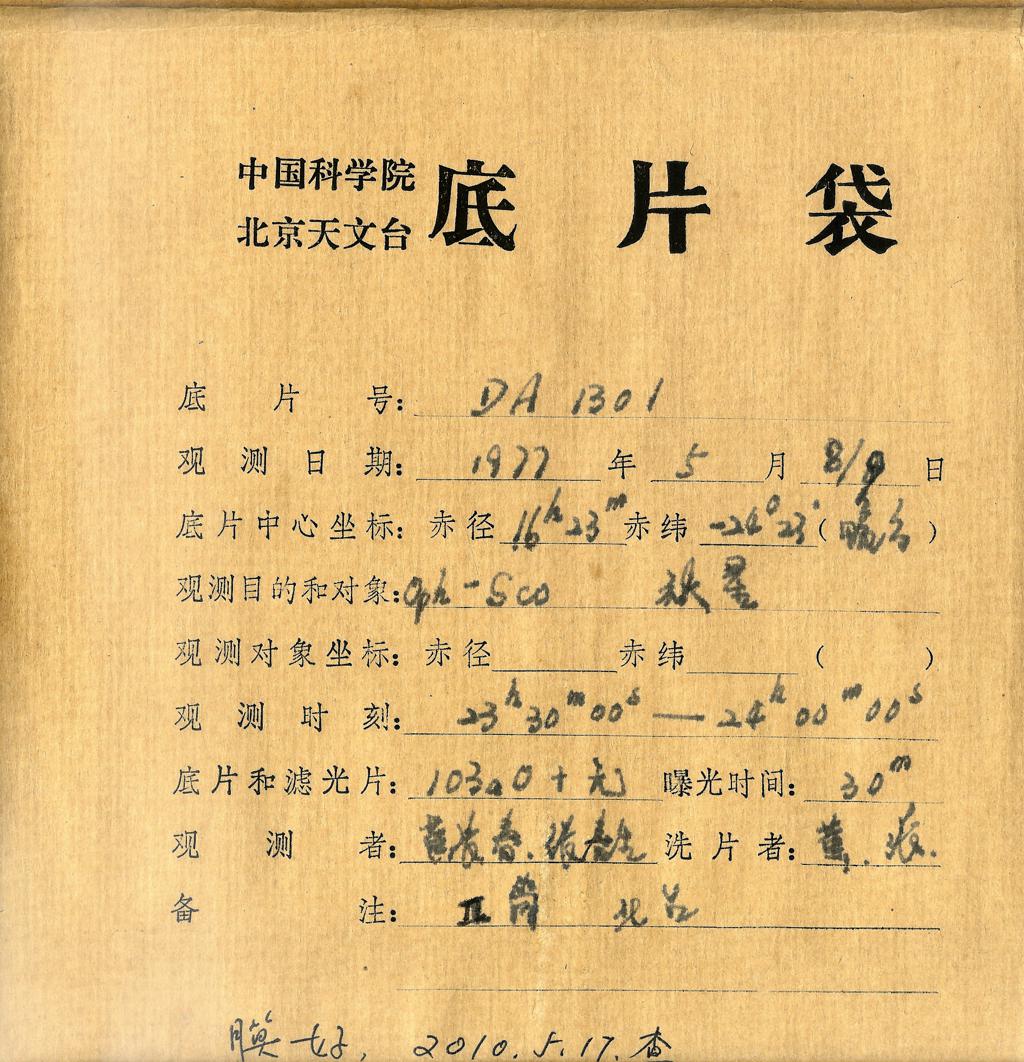 中国科学院
北京天文台 底片袋
底片号: DA 1301
观测日期: 1977 年 5 月 8/9 日
底片中心坐标: 赤径 16h 23m 赤纬 -24° 23' ( )
观测目的和对象: Oph - Sco 耀星
观测对象坐标: 赤径 赤纬 ( )
观测时刻: 23h 30m 00s — 24h 00m 00s
底片和滤光片: 103aO + 无 曝光时间: 30m
观测者: 洗片者:
备注:
膜好, 2010.5.17.查